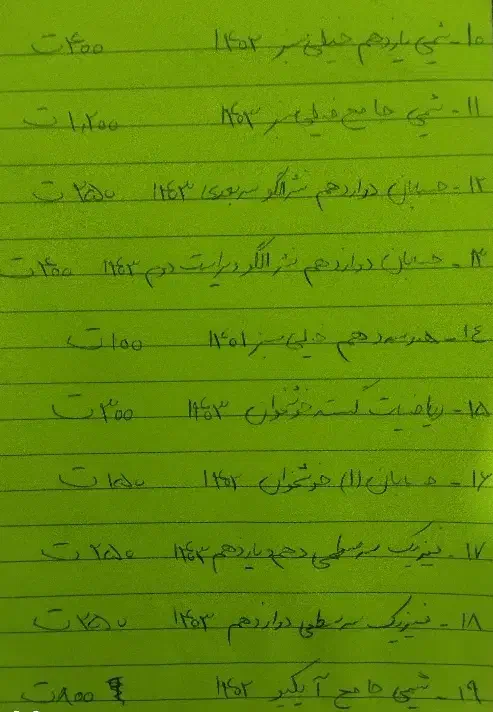 ۱۰- شیمی یازدهم خیلی سبز ۱۴۰۲ ۴۰۰ ت
۱۱- شیمی جامع خیلی سبز ۱۴۰۳ ۱,۲۰۰ ت
۱۲- حسابان دوازدهم نشرالگو سه بعدی ۱۴۰۳ ۲۵۰ ت
۱۳- حسابان دوازدهم نشرالگو ویراست دوم ۱۴۰۳ ۴۰۰ ت
۱٤- هندسه دهم خیلی سبز ۱۴۰۱ ۱۰۰ ت
۱۵- ریاضیات گسسته خوشخوان ۱۴۰۳ ۳۰۰ ت
۱۶- حسابان (۱) خوشخوان ۱۴۰۲ ۱۵۰ ت
۱۷- فیزیک سه سطحی دهم و یازدهم ۱۴۰۳ ۲۵۰ ت
۱۸- فیزیک سه سطحی دوازدهم ۱۴۰۳ ۳۵۰ ت
۱۹- شیمی جامع آیکیو ۱۴۰۲ ۸۰۰ ت